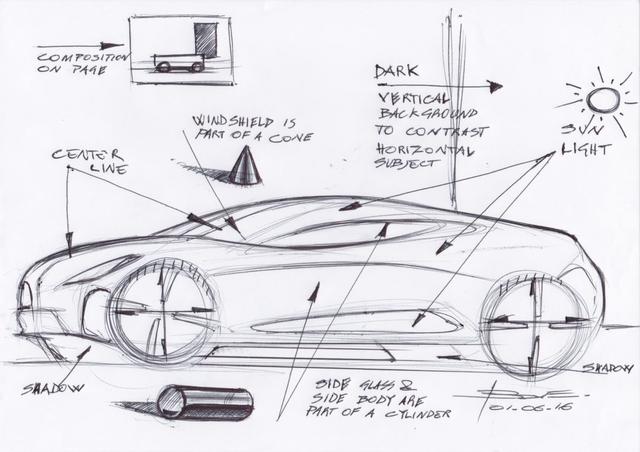 COMPOSITION
ON PAGE
DARK
VERTICAL
BACKGROUND
TO CONTRAST
HORIZONTAL
SUBJECT
SUN
LIGHT
WINDSHIELD IS
PART OF A CONE
CENTER
LINE
SHADOW
SIDE GLASS &
SIDE BODY ARE
PART OF A CYLINDER
SHADOW
01-06-16